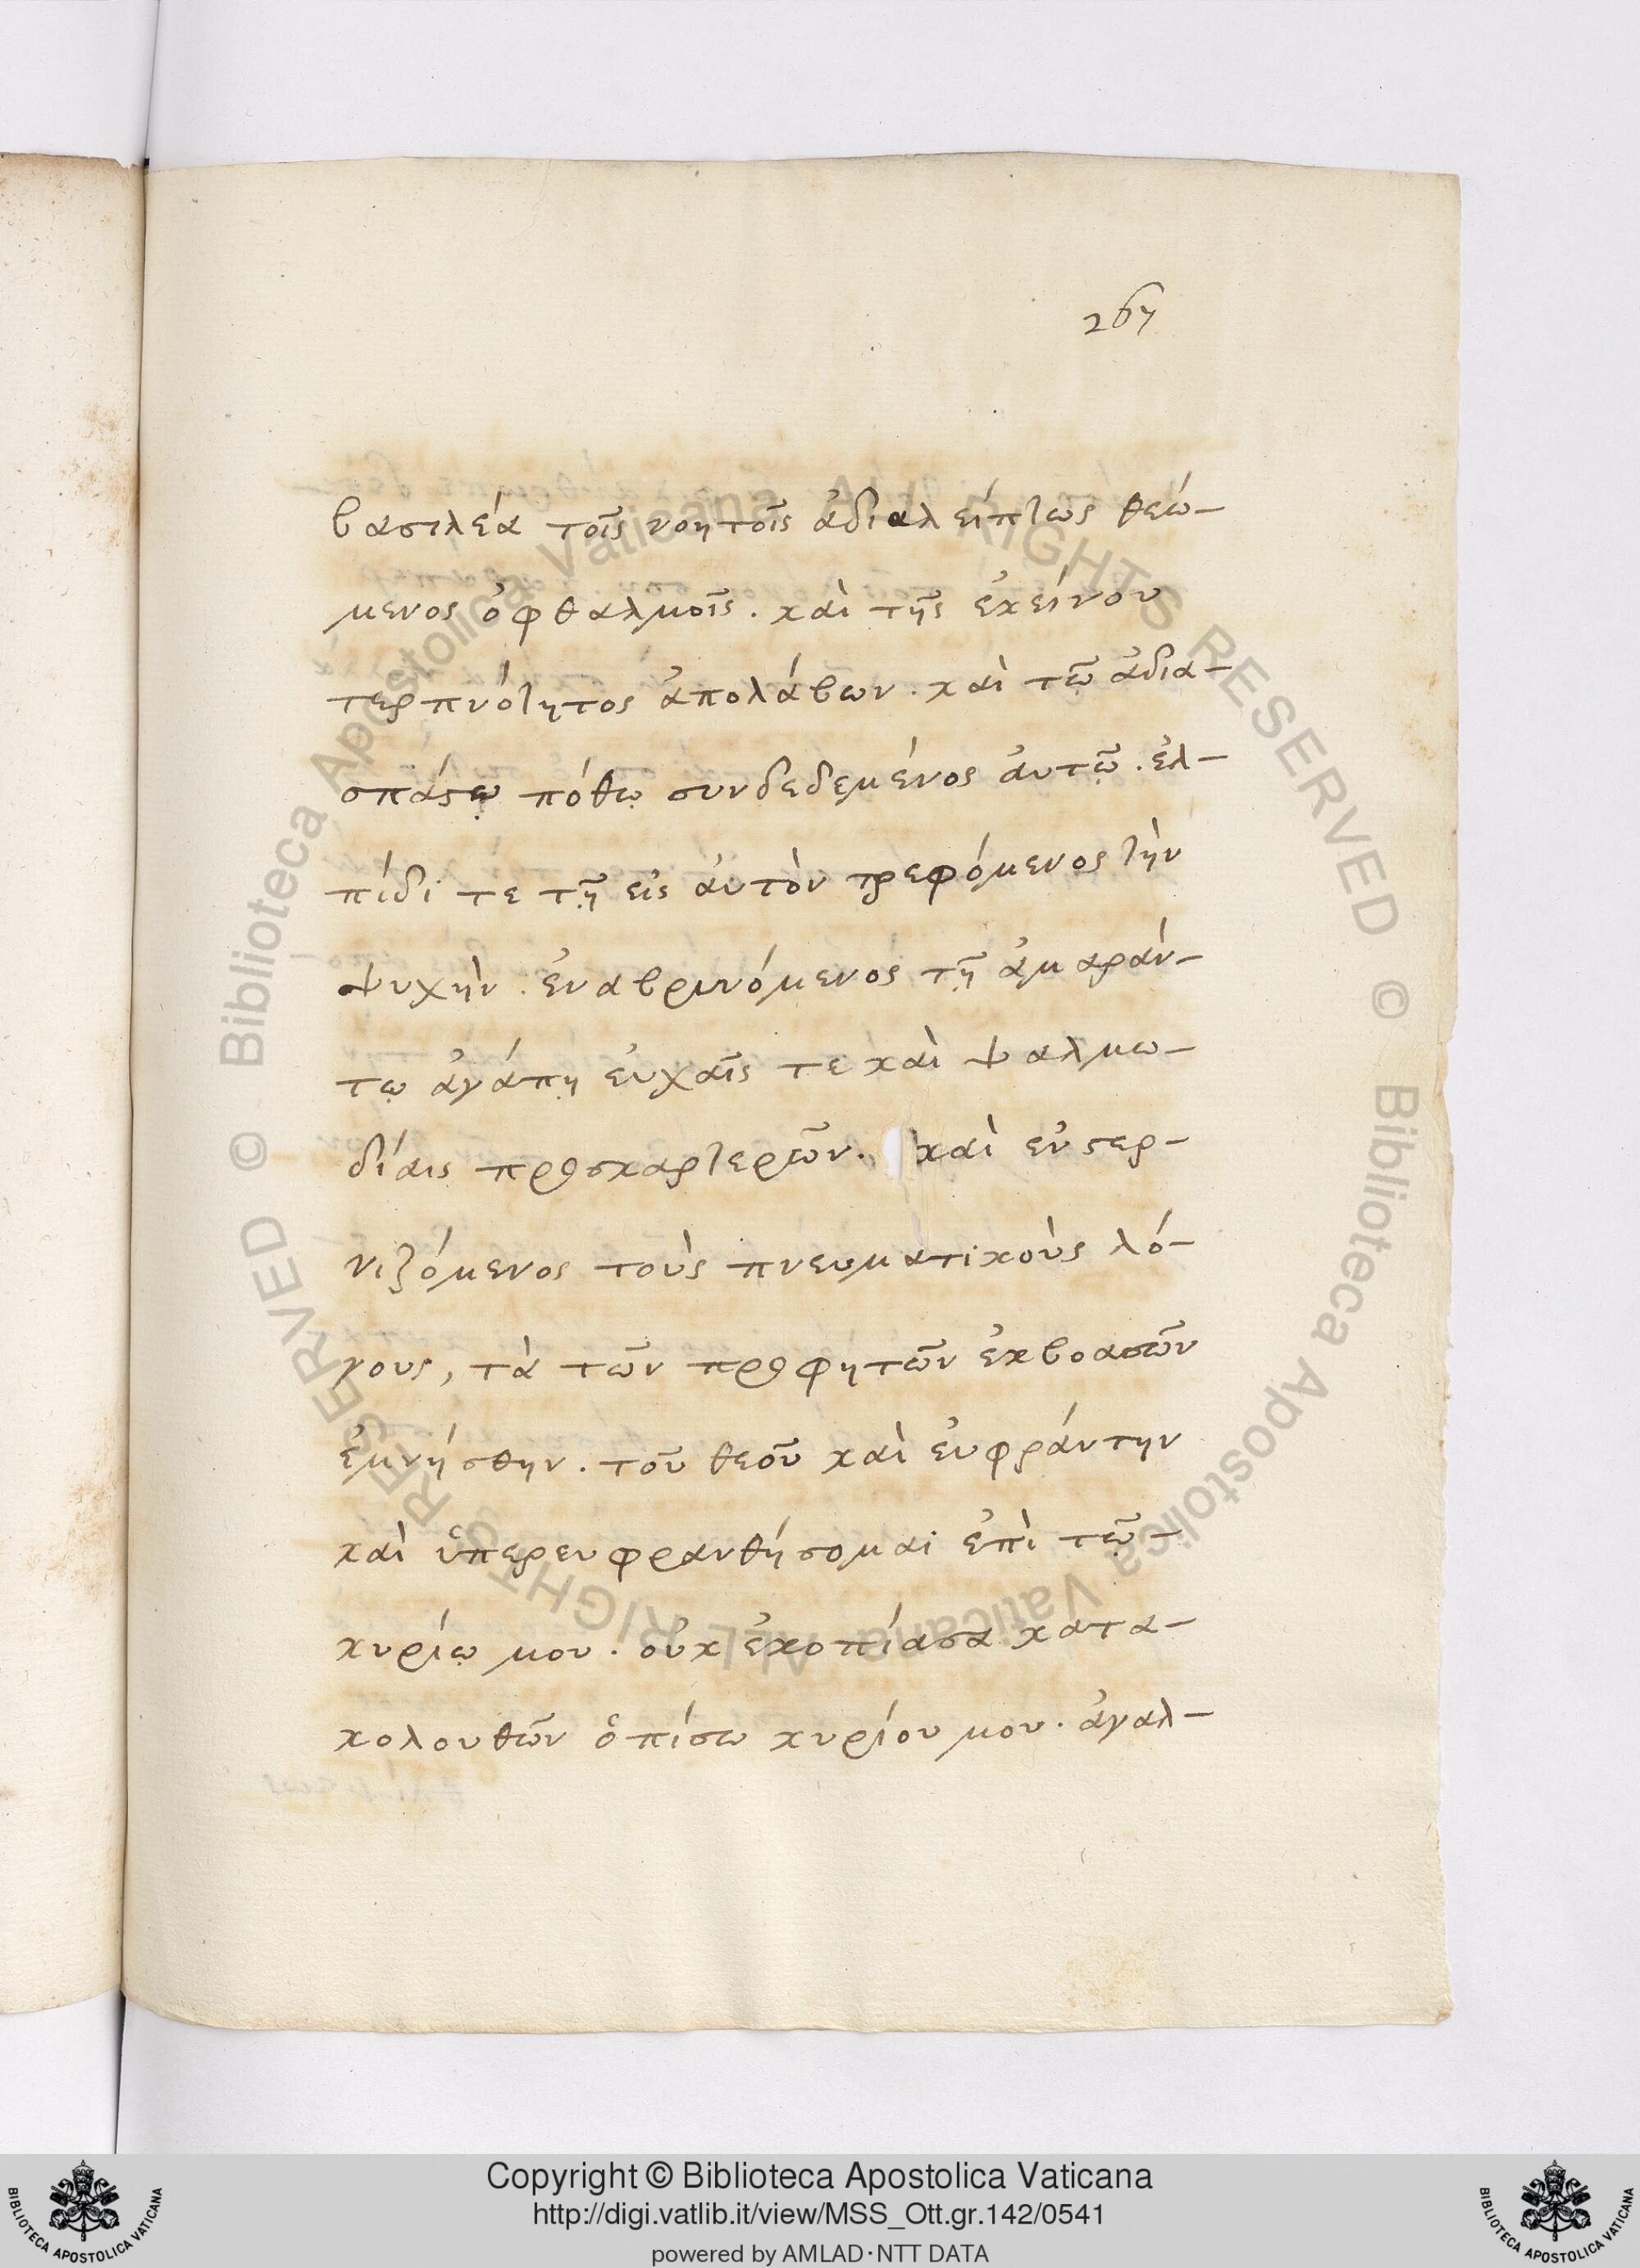 267
βασιλέα τοῖς νοητοῖς ἀδιαλείπτως θεώ-
μενος ὀφθαλμοῖς. καὶ τῆς ἐκείνου
τερπνότητος ἀπολάβων. καὶ τῷ ἀδια-
σπάστῳ πόθῳ συνδεδεμένος ἀυτῷ. ἐλ-
πίδι τε τῇ εἰς ἀυτὸν τρεφόμενος τὴν
ψυχὴν. ἐναβρυνόμενος τῇ ἀμαράν-
τῳ ἀγάπῃ ἐυχαῖς τε καὶ ψαλμω-
δίαις προσκαρτερῶν. καὶ ἐνστερ-
νιζόμενος τοὺς πνευματικοὺς λό-
γους, τὰ τῶν προφητῶν ἐκβοασῶν
ἐμνήσθην. τοῦ θεοῦ καὶ ἐυφράντην
καὶ ὑπερευφρανθήσομαι ἐπὶ τῷ-
κυρίῳ μου. οὐκ ἐκοπίασα κατα-
κολουθῶν ὀπίσω κυρίου μου. ἀγαλ-
Copyright © Biblioteca Apostolica Vaticana
http://digi.vatlib.it/view/MSS_Ott.gr.142/0541
powered by AMLAD·NTT DATA
BIBLIOTECA APOSTOLICA VATICANA
BIBLIOTECA APOSTOLICA VATICANA
© Biblioteca Apostolica Vaticana ALL RIGHTS RESERVED © Biblioteca Apostolica Vaticana ALL RIGHTS RESERVED